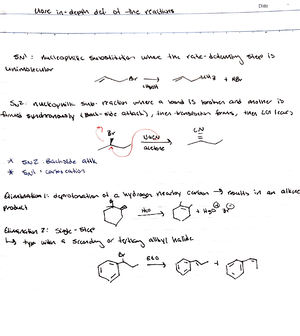 More in-depth def of the reactions
Date
SN1: nucleophilic substitution where the rate-determining step is
unimolecular
Br
+ HBr
SN2: nucleophilic sub. reaction where a bond is broken and another is
formed synchronously (Back-side attack), then transition forms, then LG leaves
Br
NaCN
acetone
CN
* SN2: Backside attk
* SN1: carbocation
Elimination 1: deprotonation of a hydrogen nearby carbon → results in an alkene
product
H2O
+ H3O⊕ Br⊖
Elimination 2: Single-Step
↳ type with a secondary or tertiary alkyl halide
Br
+